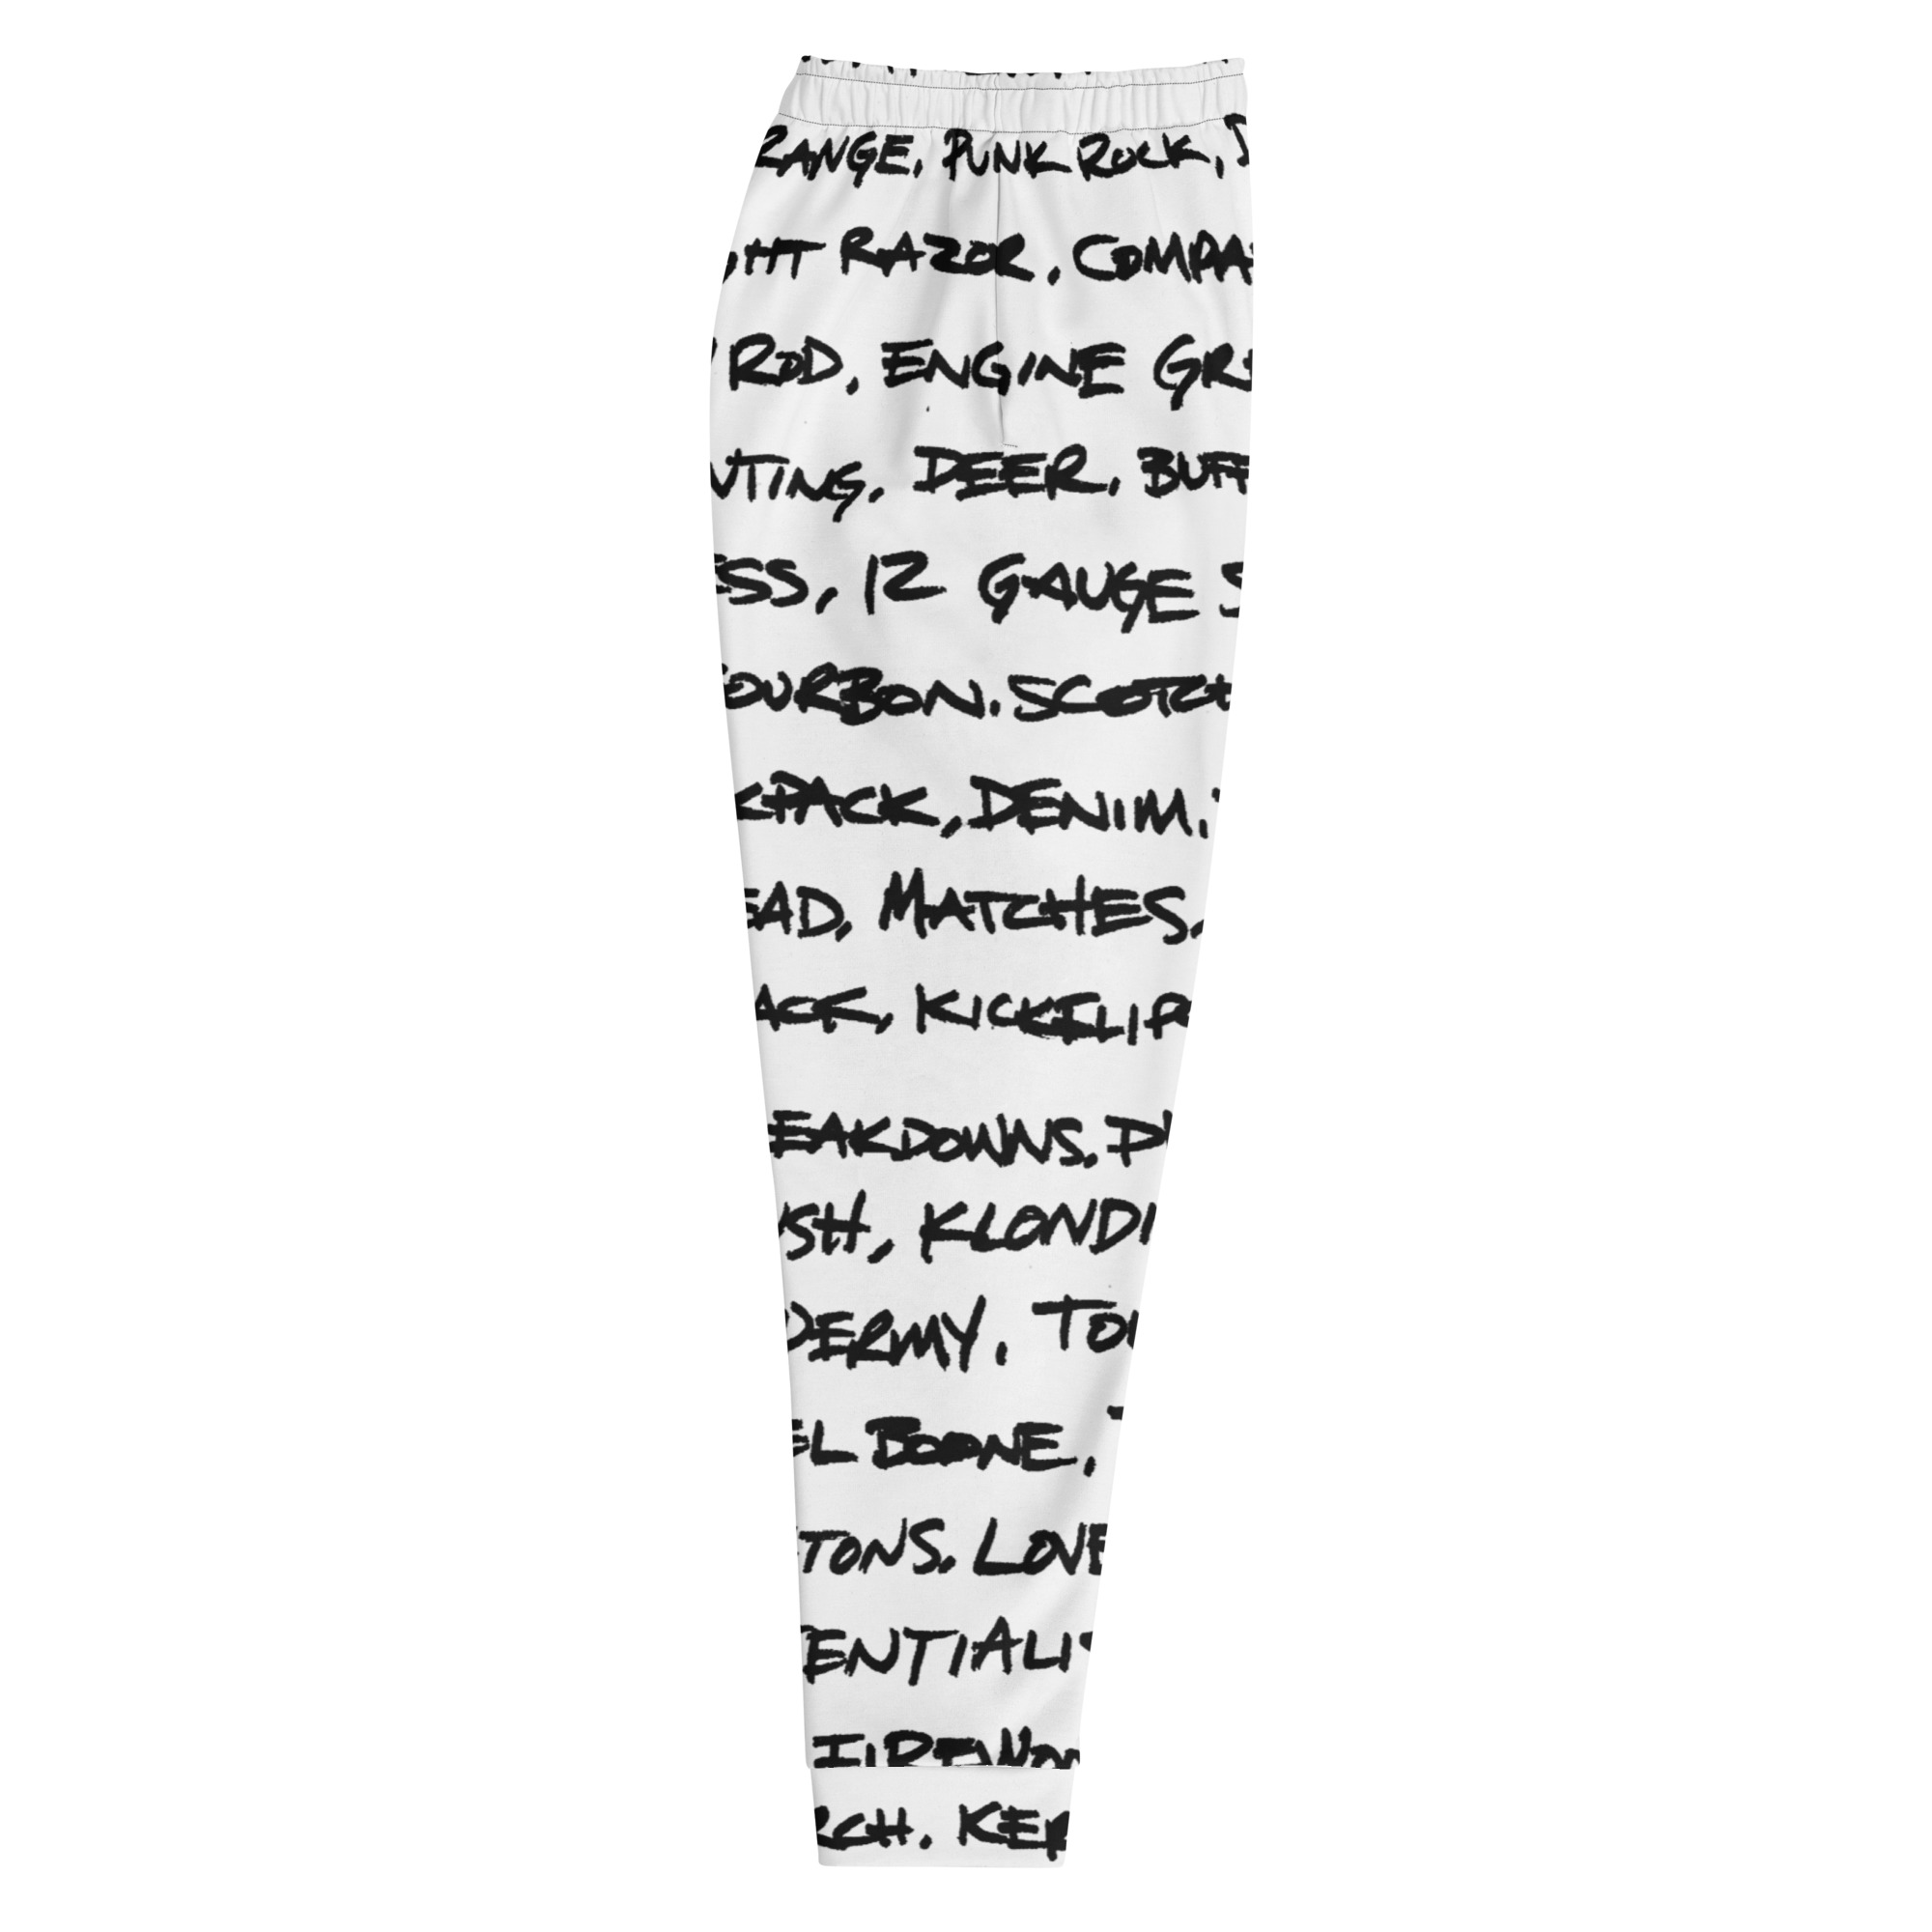 RANGE, PUNK ROCK,
GHT RAZOR, COMPA
ROD, ENGINE GRE
NTING, DEER, BUFF
ESS, 12 GAUGE S
OURBON, SCOTCH
KPACK, DENIM,
EAD, MATCHES,
ACK, KICKFLIP
EAKDOWNS, D
USH, KLONDI
DERMY, TO
EL BOONE,
TONS, LOVE
ENTIALI
FIREWOO
RCH, KER